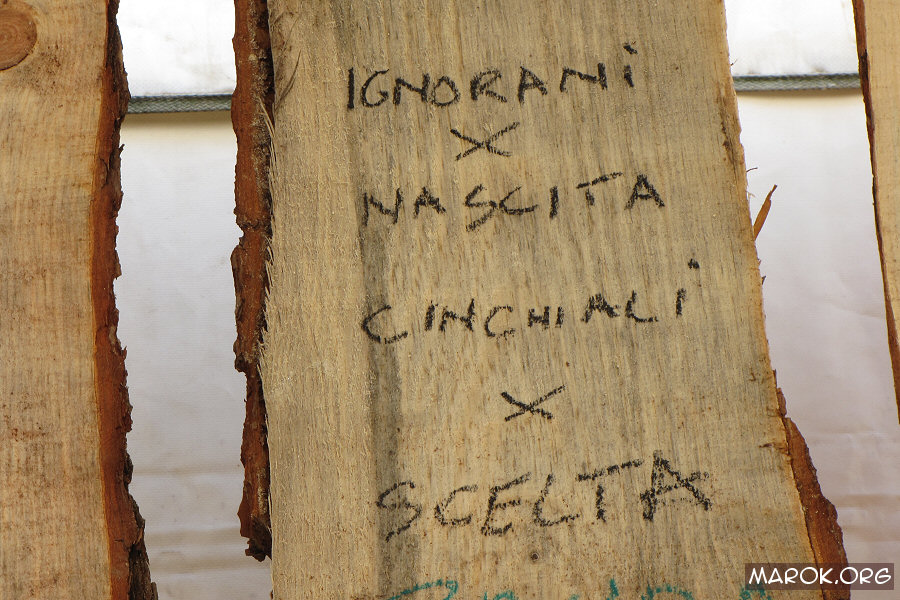 IGNORANi
X
NASCITA
CINCHIALi
X
SCELTA
MAROK.ORG